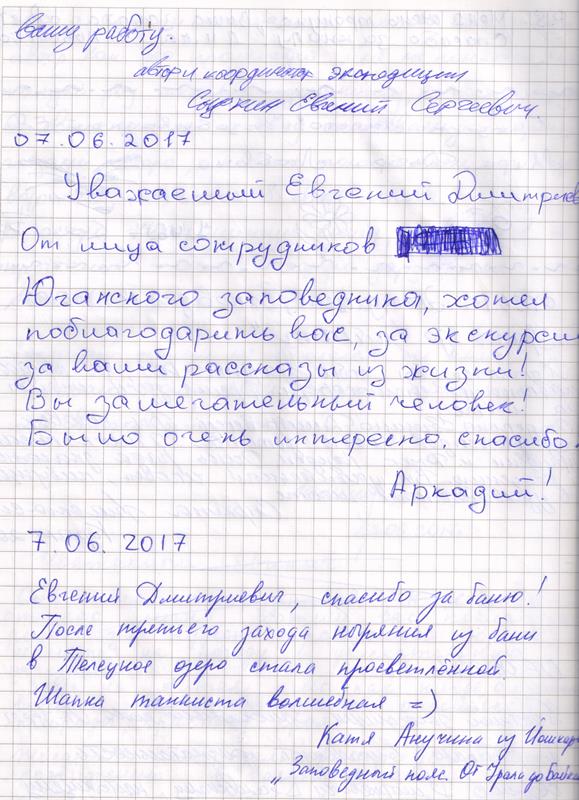 Вашу работу.
автор и координатор экспедиции
Сыркин Евгений Сергеевич.
07.06.2017
Уважаемый Евгений Дмитриев
От лица сотрудников
Юганского заповедника, хотел
поблагодарить вас, за экскурси
за ваши рассказы из жизни!
Вы замечательный человек!
Было очень интересно, спасибо.
Аркадий!
7.06.2017
Евгений Дмитриевич, спасибо за баню!
После третьего захода ныряния из бани
в Телецкое озеро стала просветлённой.
Шапка танкиста волшебная =)
Катя Анучина из Йошкар
"Заповедный пояс. От Урала до Байка